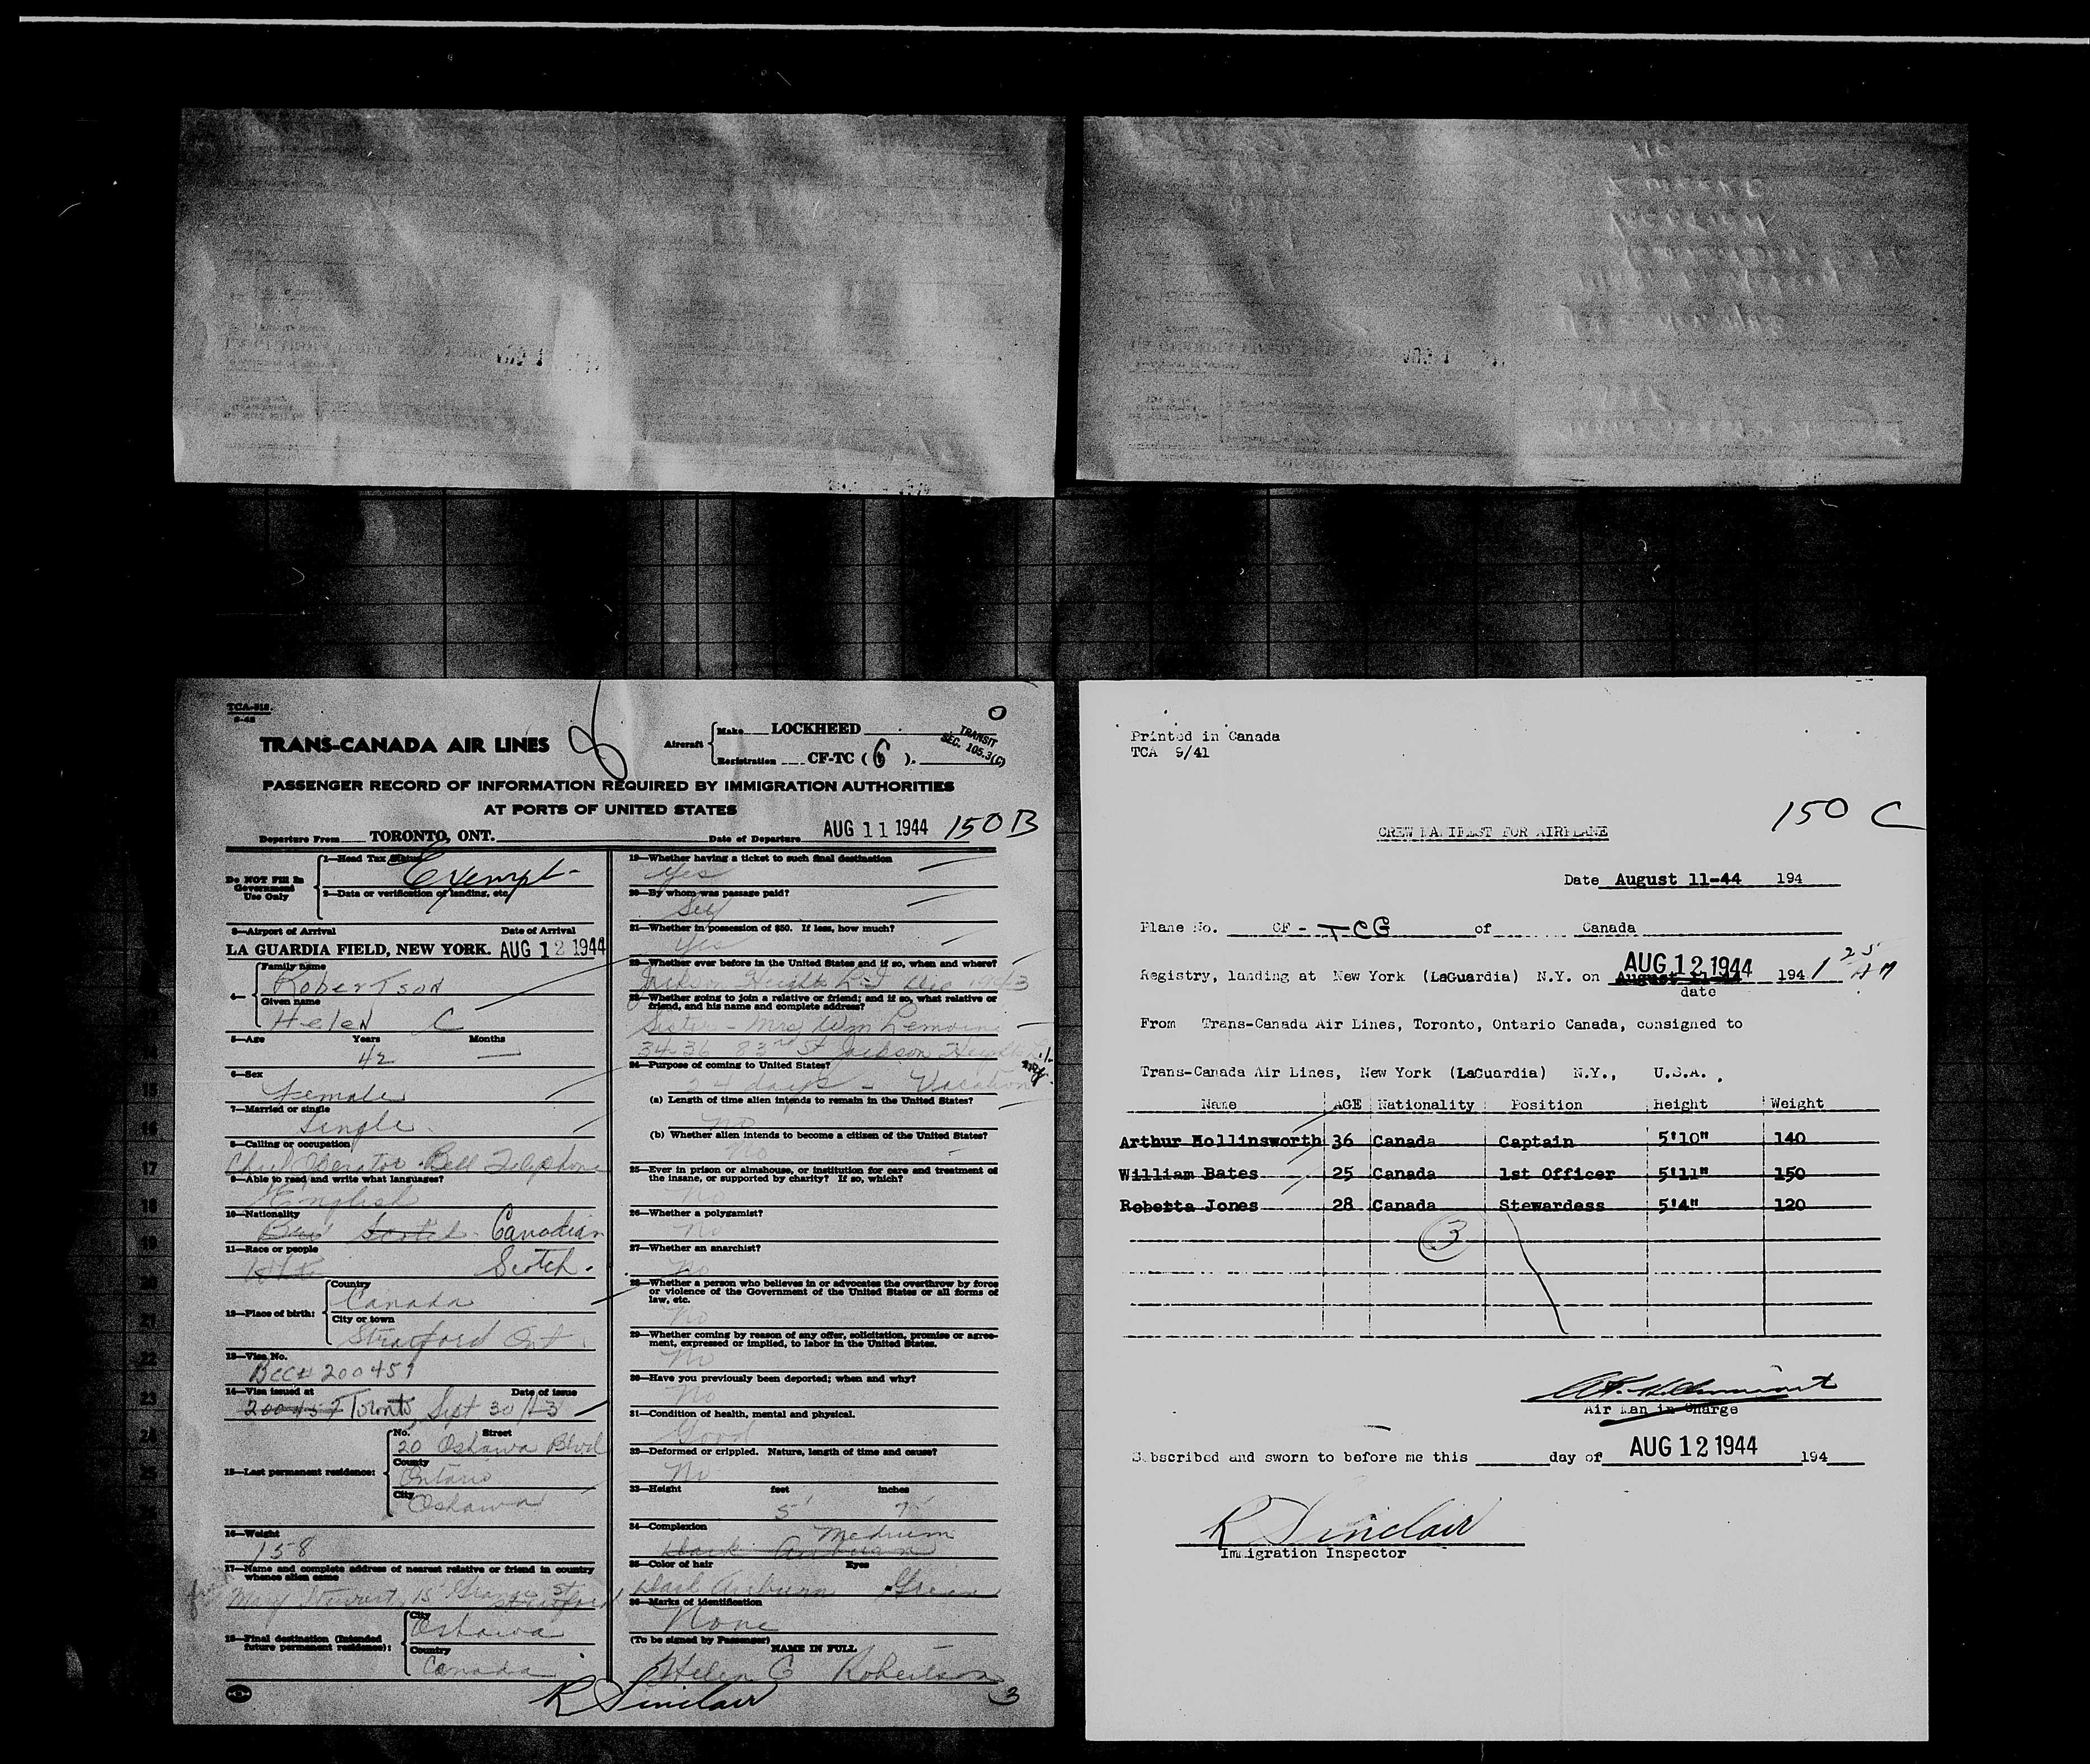 TCA-518.
TRANS-CANADA AIR LINES
Aircraft
Make LOCKHEED
Registration CF-TC ( G ).
TRANSIT
SEC. 105.3(C)
PASSENGER RECORD OF INFORMATION REQUIRED BY IMMIGRATION AUTHORITIES
AT PORTS OF UNITED STATES
Departure From TORONTO, ONT. Date of Departure AUG 11 1944 150B
Do NOT Fill In
Government
Use Only
1—Head Tax Status
Exempt
2—Data or verification of landing, etc.
3—Airport of Arrival Date of Arrival
LA GUARDIA FIELD, NEW YORK. AUG 12 1944
4—
Family name
Robertson
Given name
Helen C
5—Age Years Months
42 —
6—Sex
Female
7—Married or single
Single
8—Calling or occupation
Chief Operator Bell Telephone
9—Able to read and write what languages?
English
10—Nationality
Scotch Canadian
11—Race or people
Scotch.
12—Place of birth:
Country
Canada
City or town
Stratford Ont
13—Visa No.
BCC# 200457
14—Visa issued at Date of issue
200457 Toronto, Sept 30/43
15—Last permanent residence:
No. Street
20 Oshawa Blvd
County
Ontario
City
Oshawa
16—Weight
158
17—Name and complete address of nearest relative or friend in country
whence alien came
Stewart, 15 St Stratford
18—Final destination (Intended
future permanent residence):
City
Oshawa
Country
Canada
19—Whether having a ticket to such final destination
Yes
20—By whom was passage paid?
Self
21—Whether in possession of $50. If less, how much?
Yes
22—Whether ever before in the United States and if so, when and where?
Jackson Heights L.I. Dec 1943
23—Whether going to join a relative or friend; and if so, what relative or
friend, and his name and complete address?
Sister - Mrs Wm Lemoine
34-36 83rd St Jackson Heights
24—Purpose of coming to United States?
24 days - Vacation
(a) Length of time alien intends to remain in the United States?
No
(b) Whether alien intends to become a citizen of the United States?
No
25—Ever in prison or almshouse, or institution for care and treatment of
the insane, or supported by charity? If so, which?
No
26—Whether a polygamist?
No
27—Whether an anarchist?
No
28—Whether a person who believes in or advocates the overthrow by force
or violence of the Government of the United States or all forms of
law, etc.
No
29—Whether coming by reason of any offer, solicitation, promise or agree-
ment, expressed or implied, to labor in the United States.
No
30—Have you previously been deported; when and why?
No
31—Condition of health, mental and physical.
Good
32—Deformed or crippled. Nature, length of time and cause?
No
33—Height feet inches
5' 7"
34—Complexion
Medium
35—Color of hair Eyes
Dark Auburn Green
36—Marks of identification
None
(To be signed by Passenger)
NAME IN FULL
Helen C Robertson
R Sinclair
3
Printed in Canada
TCA 9/41
150 C
CREW MANIFEST FOR AIRPLANE
Date August 11-44 194
Plane No. CF - TCG of Canada
Registry, landing at New York (LaGuardia) N.Y. on AUG 12 1944 August 11-44 194 1 25 AM
date
From Trans-Canada Air Lines, Toronto, Ontario Canada, consigned to
Trans-Canada Air Lines, New York (LaGuardia) N.Y., U.S.A.
Name AGE Nationality Position Height Weight
Arthur Hollinsworth 36 Canada Captain 5'10" 140
William Bates 25 Canada 1st Officer 5'11" 150
Robetta Jones 28 Canada Stewardess 5'4" 120
3
Air Man in Charge
Subscribed and sworn to before me this day of AUG 12 1944 194
R Sinclair
Immigration Inspector